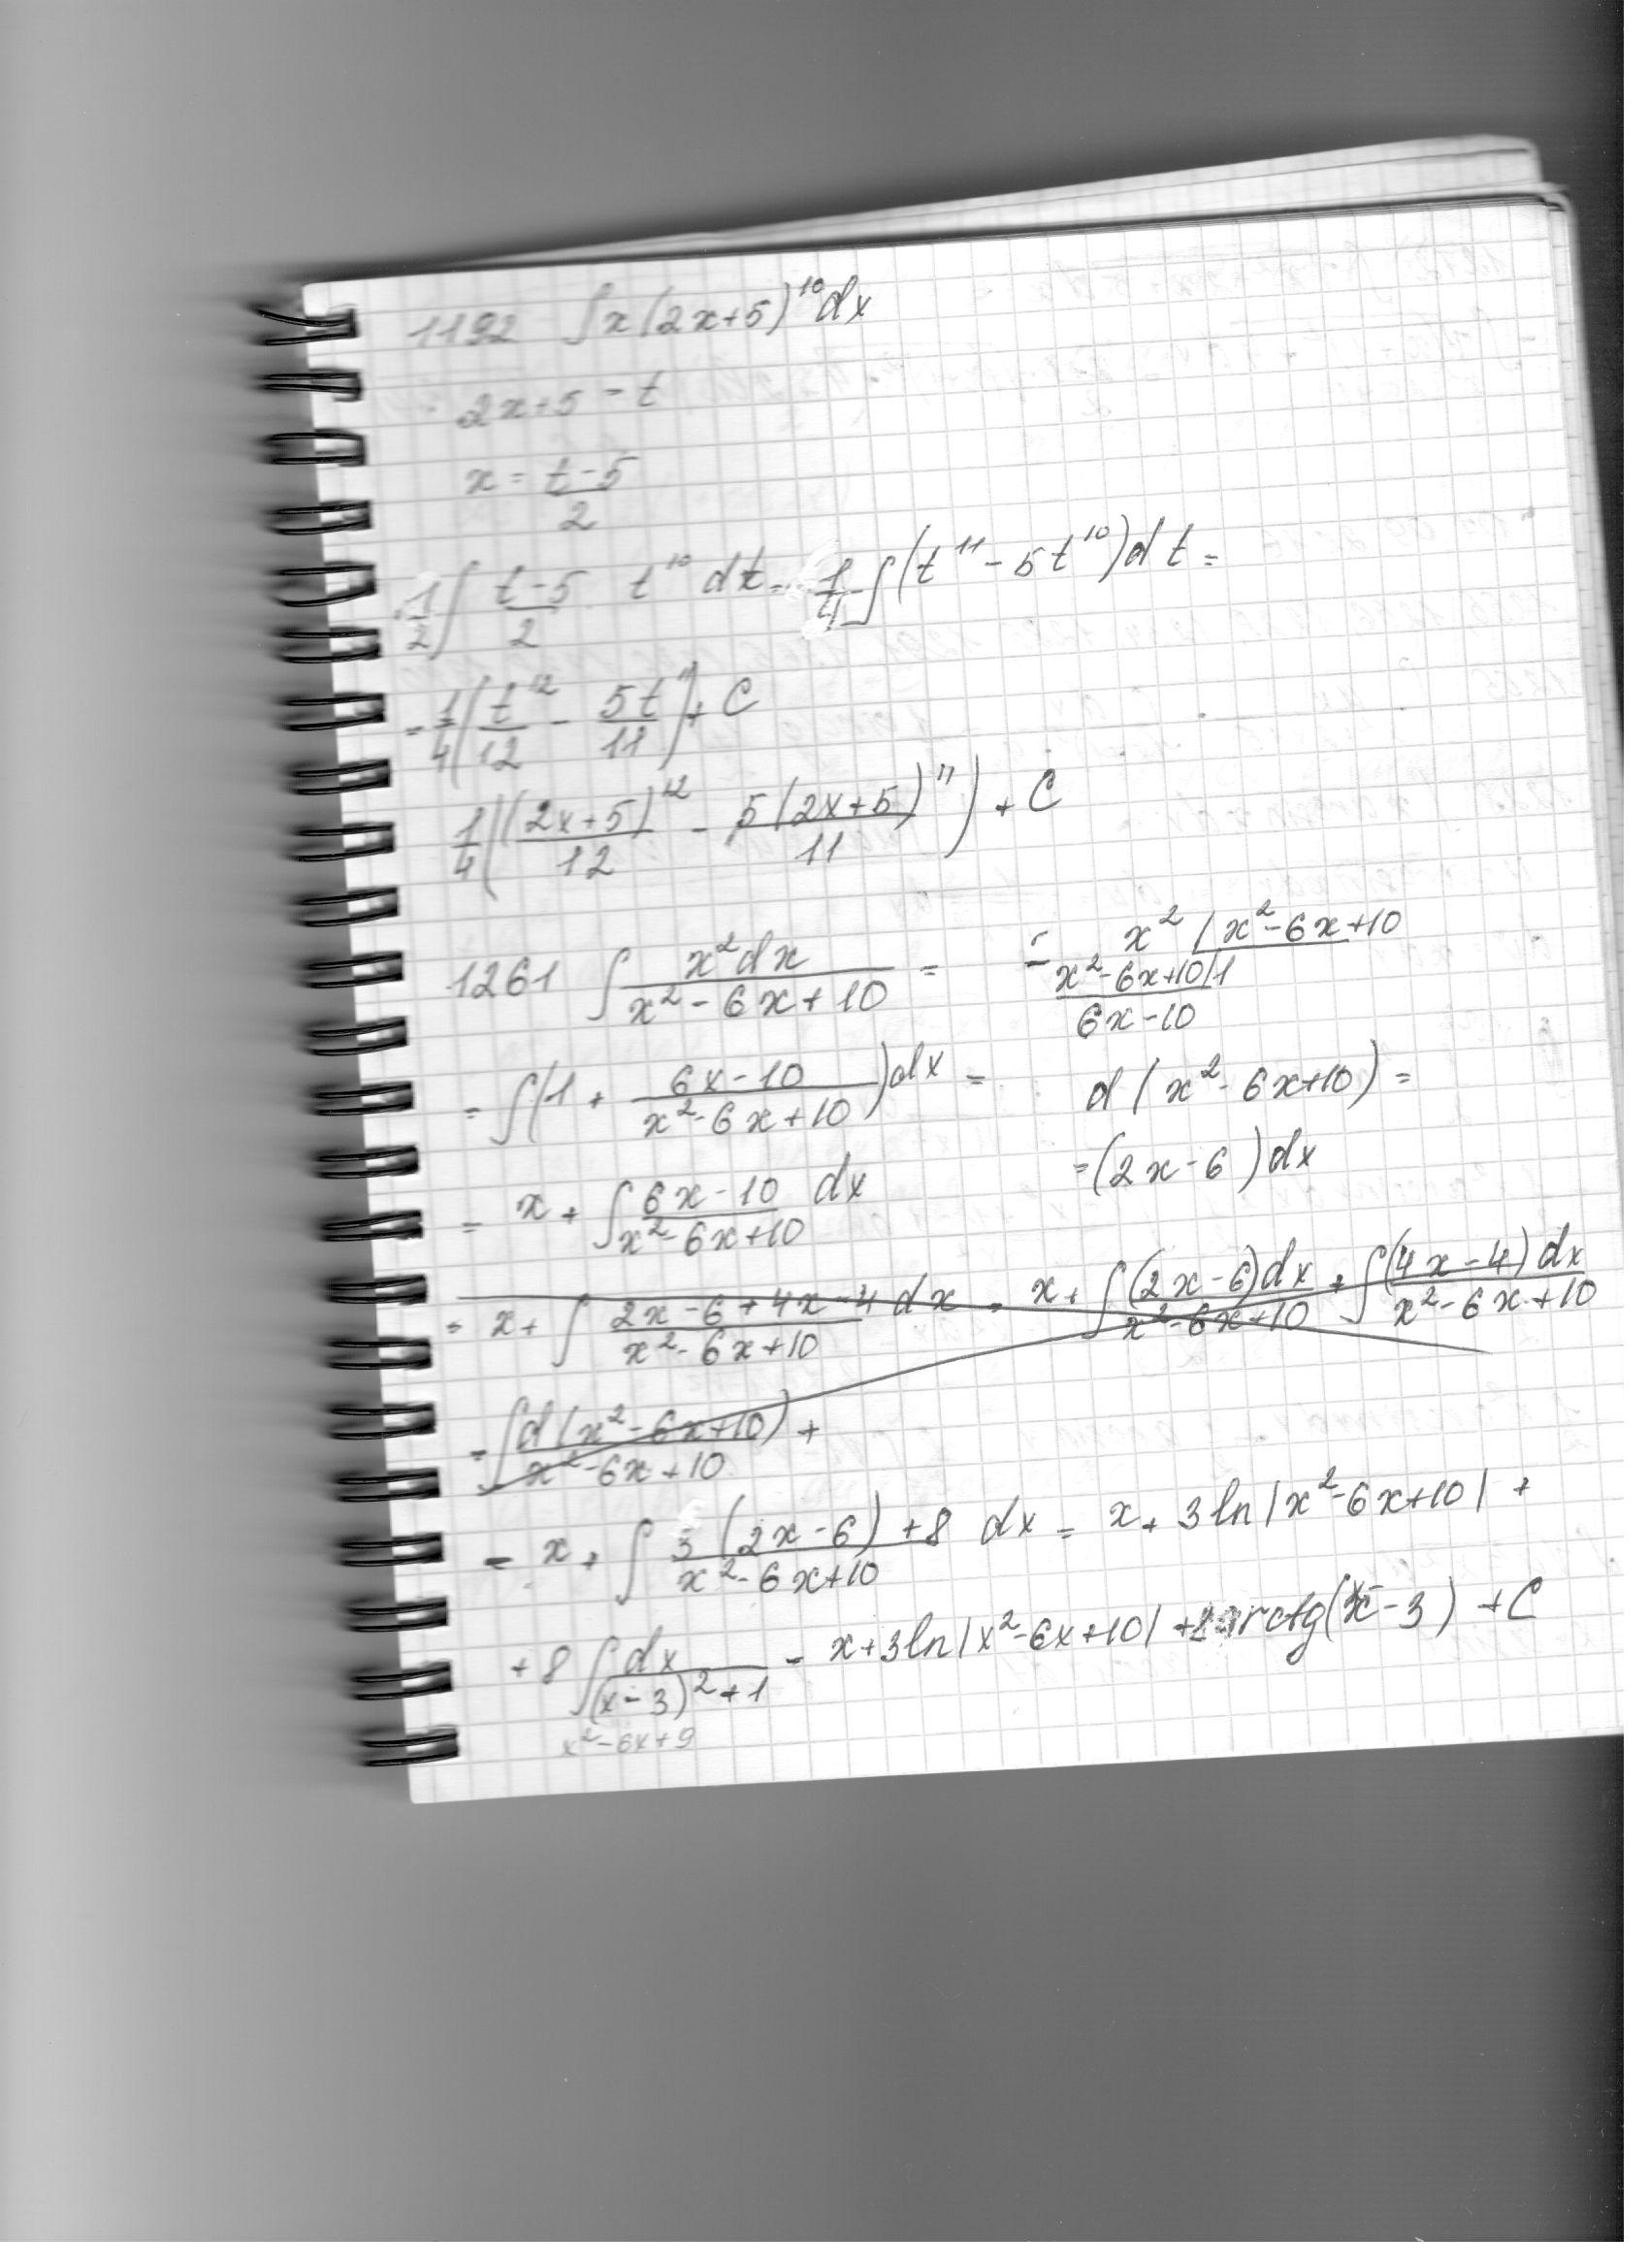 1192 ∫x(2x+5)^10 dx
2x+5 = t
x = (t-5)/2
1/2 ∫ (t-5)/2 t^10 dt = 1/4 ∫(t^11 - 5t^10)dt =
= 1/4(t^12/12 - 5t^11/11) + C
1/4((2x+5)^12/12 - 5(2x+5)^11/11) + C
1261 ∫ x^2dx/(x^2-6x+10) =
- x^2 | x^2-6x+10
x^2-6x+10 | 1
6x-10
= ∫(1 + (6x-10)/(x^2-6x+10))dx =
d(x^2-6x+10) =
= (2x-6)dx
= x + ∫ (6x-10)/(x^2-6x+10) dx
= x + ∫ (2x-6+4x-4)/(x^2-6x+10) dx = x + ∫ (2x-6)dx/(x^2-6x+10) + ∫ (4x-4)dx/(x^2-6x+10)
= ∫ d(x^2-6x+10)/(x^2-6x+10) +
= x + ∫ (3(2x-6)+8)/(x^2-6x+10) dx = x + 3ln|x^2-6x+10| +
+ 8 ∫ dx/((x-3)^2+1) = x+3ln|x^2-6x+10| + 8arctg(x-3) + C
x^2-6x+9